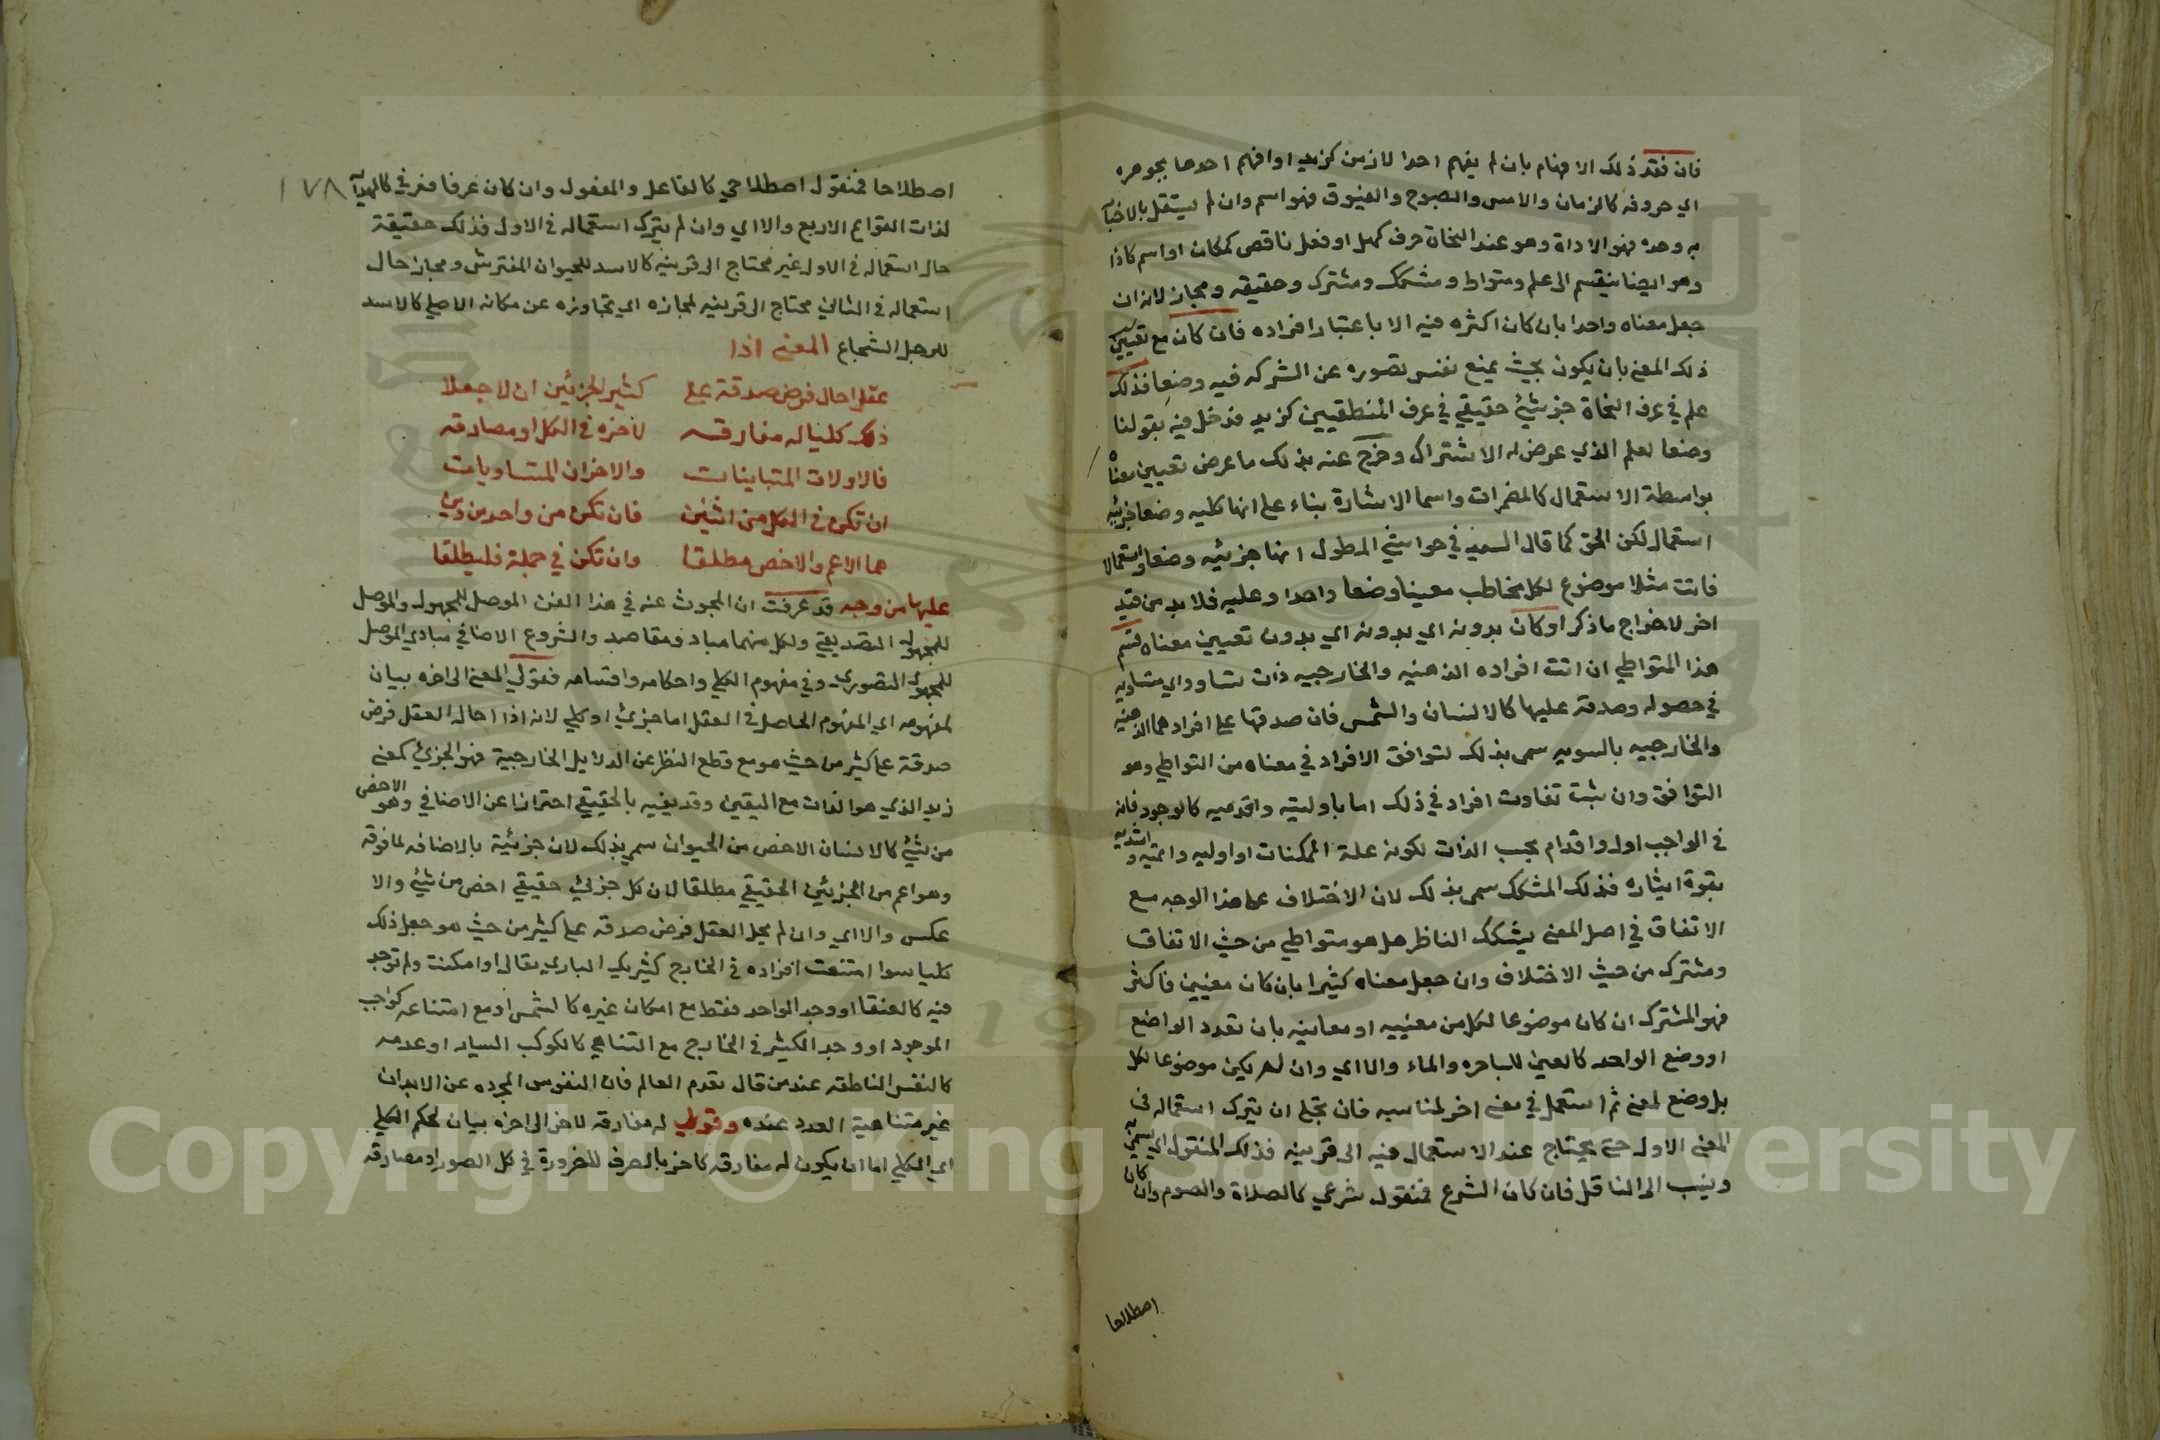 فان فقد ذلك الافهام بان لم يفهم احدا لازمن كزيد او افهم احدها بجوهره
اي حروفه كالزمان والامس والصبوح والغبوق فهو اسم وان لم يستقل بالاخبا
به وحده فهو الاداة وهو عند النحاة حرف كهل او فعل ناقص كمكان او اسم كاذا
وهو ايضا ينقسم الى علم ومتواط ومشكك ومشترك وحقيقه ومجاز لانه ان
جعل معناه واحدا بان كان اكثره فيه الا باعتبار افراده فان كان مع تعيين
ذلك المعنى بان يكون بحيث يمنع نفس تصوره عن الشركه فيه وضعا فذلك
علم في عرف النحاة جزئي حقيقي في عرف المنطقيين كزيد فدخل فيه بقولنا
وضعا العلم الذي عرض له الاشتراك وخرج عنه بذلك ما عرض تعيين معناه
بواسطة الاستعمال كالمضمرات واسما الاشارة بناء على انها كليه وضعا جزئيه
استعمالا لكن الحق كما قال السيد في حواشي المطول انها جزئيه وضعا واستعمالا
فانت مثلا موضوع لكل مخاطب معينا وضعا واحدا وعليه فلا بد من قيد
اخر لاخراج ما ذكر او كان بدونه اي بدونه اي بدون تعيين معناه فسم
هذا المتواطي ان اتت افراده الذهنيه والخارجيه ذات تساو واي متساويه
في حصوله وصدقه عليها كالانسان والشمس فان صدقها على افرادهما الذهنيه
والخارجيه بالسويه سمي بذلك لتوافق الافراد في معناه من التواطي وهو
التوافق وان يثبت تفاوت افراد في ذلك اما باوليته واقدميه كالوجود فانه
في الواجب اول واقدام بحسب الذات لكونه علة الممكنات او اوليه واتميه واشديه
بقوة اثاره فذلك المشكك سمي بذلك لان الاختلاف على هذا الوجه مع
الاتفاق في اصل المعنى يشكك الناظر هل هو متواطي من حيث الاتفاق
ومشترك من حيث الاختلاف وان جعل معناه كثيرا بان كان معنيين فاكثر
فهو المشترك ان كان موضوعا لكل من معنييه او معانيه بان تعدد الواضع
او وضع الواحد كالعين للباصره والماء والا اي وان لم يكن موضوعا لكل
بل وضع لمعنى ثم استعمل في معنى اخر لمناسبه فان تجلى ان يترك استعماله في
المعنى الاول حتى يحتاج عند الاستعمال فيه الى قرينه فذلك المنقول اي يسمى به
وينسب الى الناقل فان كان الشرع فمنقول شرعي كالصلاة والصوم وان كان
اصطلاحا
١٧٨
اصطلاحا فمنقول اصطلاحي كالفاعل والمفعول وان كان عرفا فعرفي كالهدا
لذات القوائم الاربع والا اي وان لم يترك استعماله في الاول فذلك حقيقة
حال استعماله في الاول غير محتاج الى قرينه كالاسد للحيوان المفترس ومجاز حال
استعماله في الثاني محتاج الى قرينه لمجازه اي تجاوزه عن مكانه الاصلي كالاسد
للرجل الشجاع المعنى اذا
عقل احال فرض صدقة على كثير الجزئين ان لا جعلا
ذلك كليا له مفارقه لاخره في الكل او مصادقه
فالاولات المتباينات والاخران المتساويات
ان تكن في الكل من اثنين فان تكن من واحد من ذين
هما الاعم والاخص مطلقا وان تكن في جملة فليطلقا
عليها من وجه قد عرفت ان المبحوث عنه في هذا الفن الموصل للمجهول والموصل
للمجهول التصديقي ولكل منهما مباد ومقاصد والشروع الاضافي مبادي الموصل
للمجهول التصوري وفي مفهوم الكلي واحكامه واقسامه فقولي المعنى الى اخره بيان
لمفهومه اي المفهوم الحاصل في العقل اما جزئي او كلي لانه اذا احال العقل فرض
صدقه على كثير من حيث هو مع قطع النظر عن الدلايل الخارجية فهو الجزئي كمعنى
زيد الذي هو الذات مع اليقين وقد يقيد بالحقيقي احترازا عن الاضافي وهو الاخص
من شئ كالانسان الاخص من الحيوان سمي بذلك لان جزئية بالاضافه لما فوقه
وهو اعم من الجزئين الحقيقي مطلقا لان كل جزئي حقيقي اخص من شئ والا
عكس والا اي وان لم يحل العقل فرض صدقه على كثير من حيث هو جعل ذلك
كليا سوا امتنعت افراده في الخارج كشريك الباري تعالى او امكنت ولم توجد
فيه كالعنقا او وجد الواحد فقط مع امكان غيره كالشمس او مع امتناعه كواجب
الموجود او وجد الكثير في الخارج مع التناهي كالكوكب السيار او عدمه
كالنفس الناطقه عند من قال بقدم العالم فان النفوس المجرده عن الابدان
غير متناهية العدد عنده وقولي له مفارقه لاخر الى اخره بيان لحكم الكلي
اي الكلي اما ان يكون له مفارقه كاخر بالعرف للضرورة في كل الصور او مصادقه
Copyright © King Saud University
1957